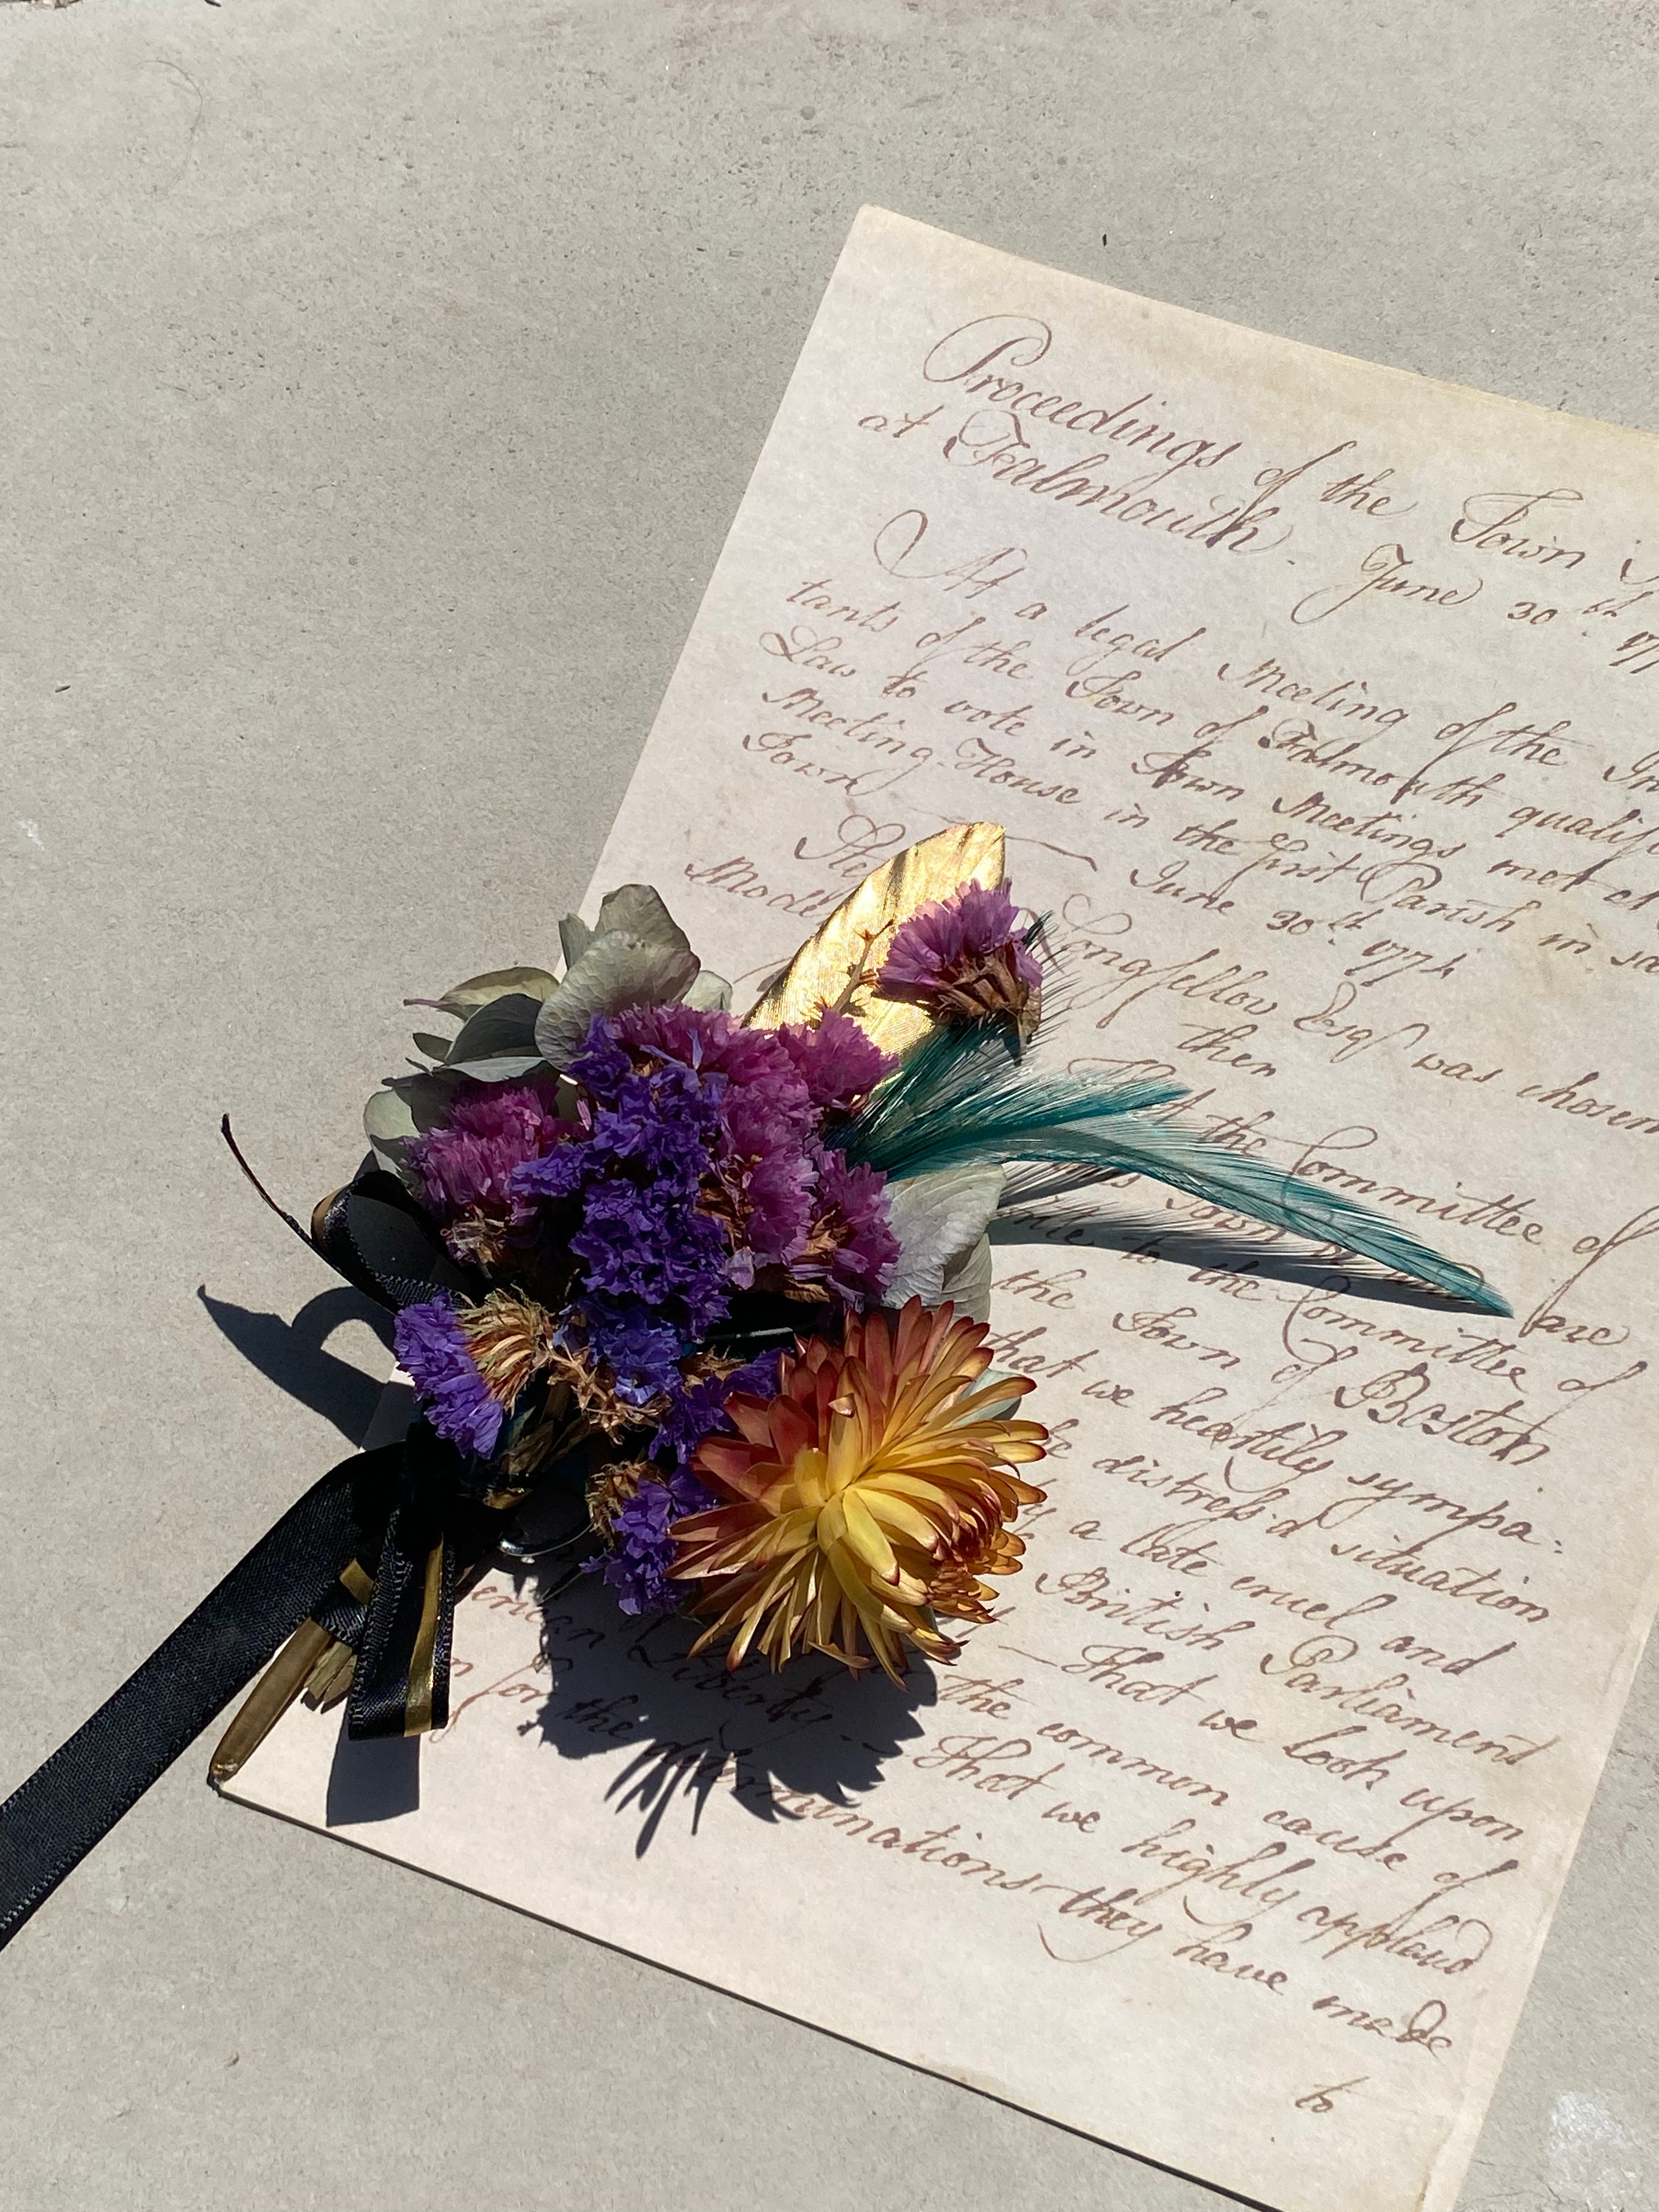 Proceedings of the Town
at Falmouth. June 30th. 177
At a legal Meeting of the In
tants of the Town of Falmouth qualif
Law to vote in Town Meetings met at
Meeting-House in the first Parish in sa
Town June 30th. 1774
Ste Longfellow Esqr was chosen
Mode then
the Committee of
Town are
to the Committee of
the Town of Boston
that we heartily sympa-
distress'd situation
by a late cruel and
British Parliament
That we look upon
the common cause of
erican Liberty - That we highly applaud
for the determinations they have made
to